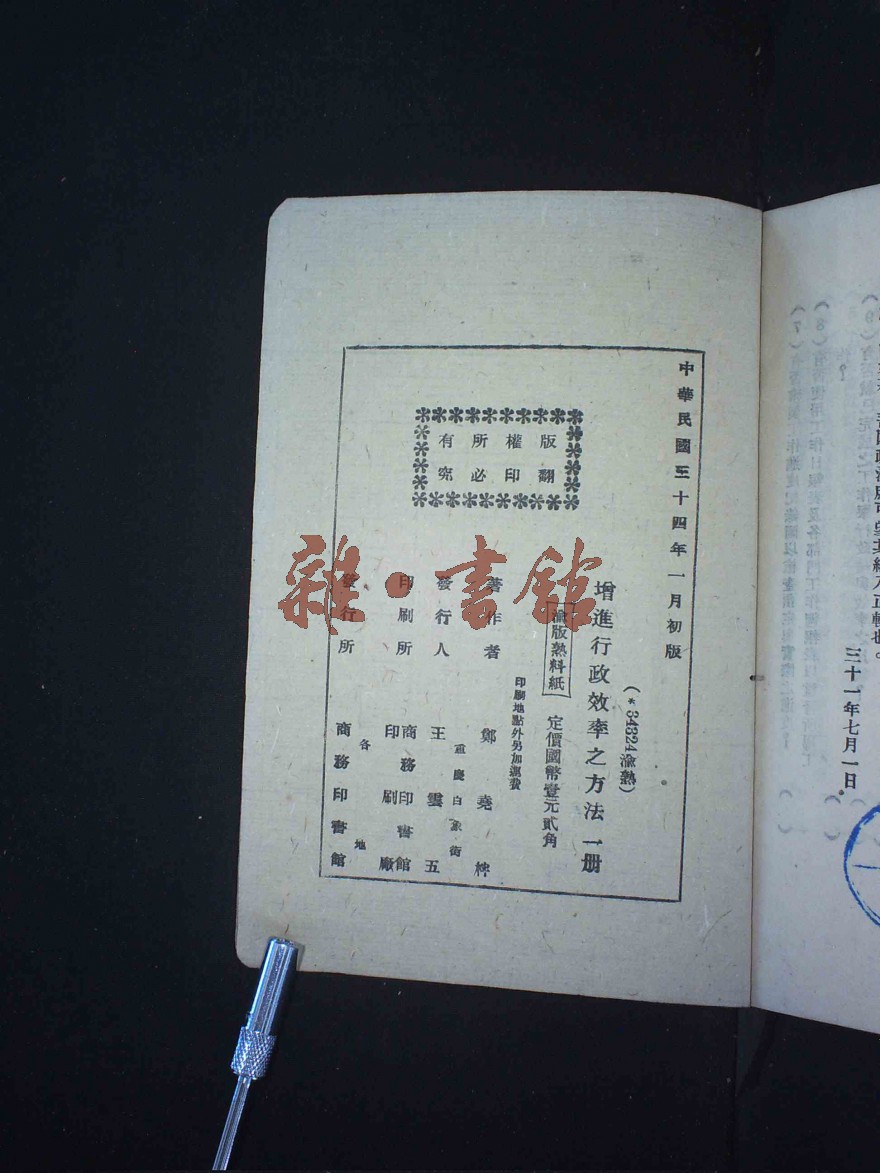 三十一年七月一日。
中華民國三十四年一月初版
版權所有
翻印必究
(*34324渝熱)
增進行政效率之方法 一册
渝版熟料紙
定價國幣壹元貳角
印刷地點外另加運費
著作者 鄭堯柈
發行人 王雲五
重慶白象街
印刷所 商務印書館印刷廠
發行所 各地商務印書館
雜·書館